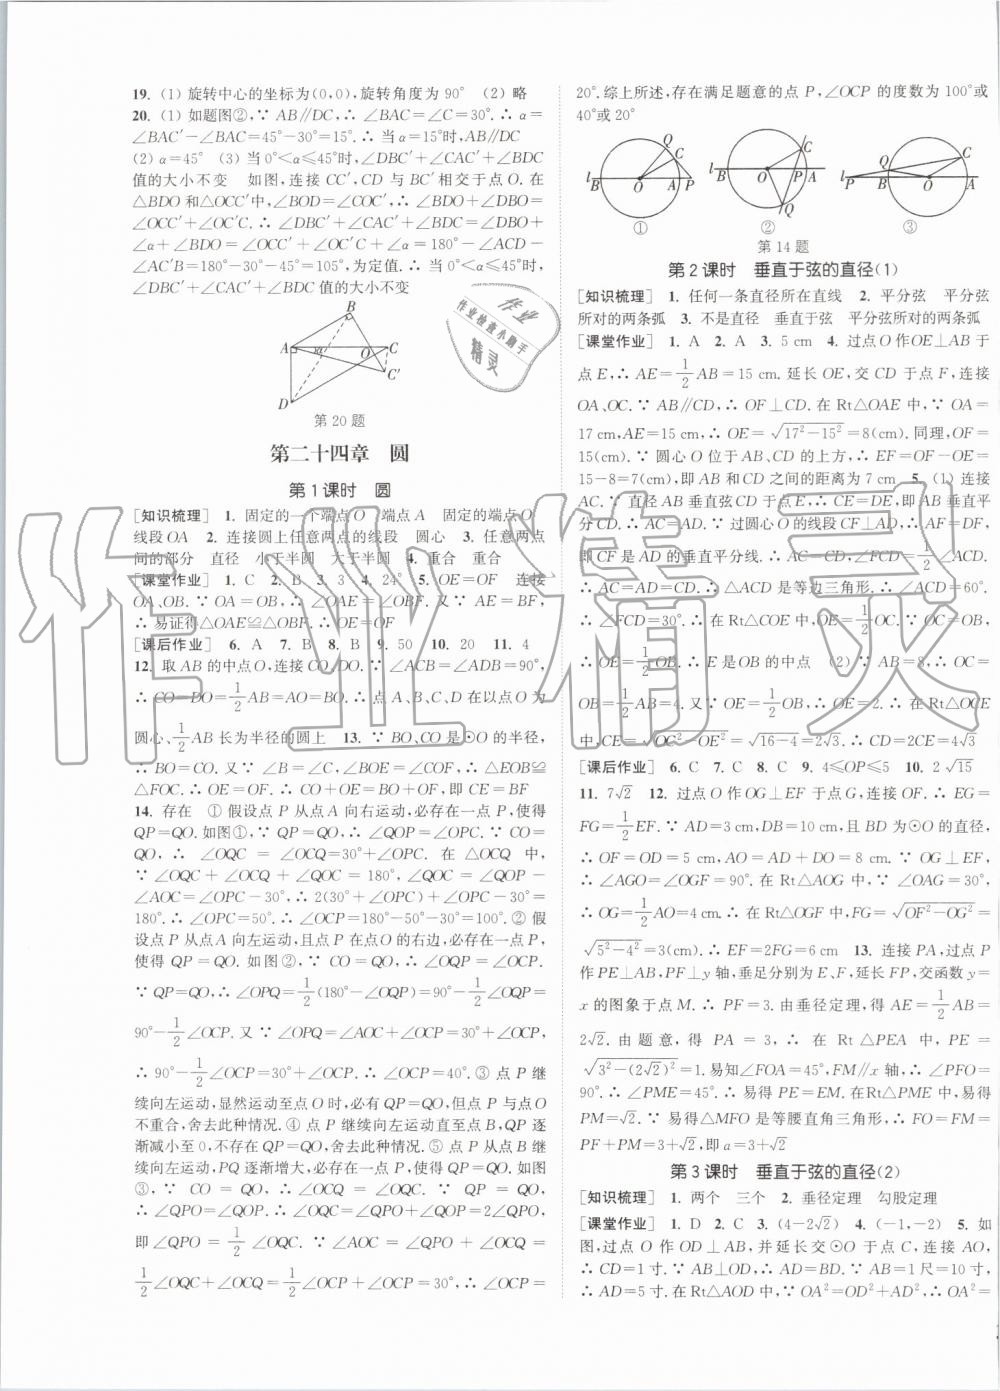 19. (1) 旋转中心的坐标为(0,0),旋转角度为90° (2) 略
20. (1) 如题图②,∵ AB∥DC,∴ ∠BAC=∠C=30°.∴ α=
∠BAC′−∠BAC=45°−30°=15°.∴ 当α=15°时,AB∥DC
(2) α=45° (3) 当0°<α≤45°时,∠DBC′+∠CAC′+∠BDC
值的大小不变 如图,连接CC′,CD与BC′相交于点O.在
△BDO和△OCC′中,∠BOD=∠COC′,∴ ∠BDO+∠DBO=
∠OCC′+∠OC′C.∴ ∠DBC′+∠CAC′+∠BDC=∠DBO+
∠α+∠BDO=∠OCC′+∠OC′C+∠α=180°−∠ACD−
∠AC′B=180°−30°−45°=105°,为定值.∴ 当0°<α≤45°时,
∠DBC′+∠CAC′+∠BDC值的大小不变
B
A
α
O
C
C′
D
第20题
第二十四章 圆
第1课时 圆
[知识梳理] 1. 固定的一个端点O 端点A 固定的端点O
线段OA 2. 连接圆上任意两点的线段 圆心 3. 任意两点
间的部分 直径 小于半圆 大于半圆 4. 重合 重合
[课堂作业] 1. C 2. B 3. 3 4. 24° 5. OE=OF 连接
OA、OB.∵ OA=OB,∴ ∠OAE=∠OBF.又∵ AE=BF,
∴ 易证得△OAE≌△OBF.∴ OE=OF
[课后作业] 6. A 7. B 8. B 9. 50 10. 20 11. 4
12. 取AB的中点O,连接CO、DO.∵ ∠ACB=∠ADB=90°,
∴ CO=DO=1/2AB=AO=BO.∴ 点A、B、C、D在以点O为
圆心、1/2AB长为半径的圆上 13. ∵ BO、CO是⊙O的半径,
∴ BO=CO.又∵ ∠B=∠C,∠BOE=∠COF,∴ △EOB≌
△FOC.∴ OE=OF.∴ CO+OE=BO+OF,即CE=BF
14. 存在 ① 假设点P从点A向右运动,必存在一点P,使得
QP=QO.如图①,∵ QP=QO,∴ ∠QOP=∠OPC.∵ CO=
QO,∴ ∠OQC=∠OCQ=30°+∠OPC.在△OCQ中,
∵ ∠QOC+∠OCQ+∠QOC=180°,∠QOC=∠QOP−
∠AOC=∠OPC−30°,∴ 2(30°+∠OPC)+∠OPC−30°=
180°.∴ ∠OPC=50°.∴ ∠OCP=180°−50°−30°=100°.② 假
设点P从点A向左运动,且点P在点O的右边,必存在一点P,
使得QP=QO.如图②,∵ CO=QO,∴ ∠OQP=∠OCP.
∵ QP=QO,∴ ∠OPQ=1/2(180°−∠OQP)=90°−1/2∠OQP=
90°−1/2∠OCP.又∵ ∠OPQ=∠AOC+∠OCP=30°+∠OCP,
∴ 90°−1/2∠OCP=30°+∠OCP.∴ ∠OCP=40°.③ 点P继
续向左运动,显然运动至点O时,必有QP=QO,但点P与点O
不重合,舍去此种情况.④ 点P继续向左运动直至点B,QP逐
渐减小至0,不存在QP=QO,舍去此种情况.⑤ 点P从点B继
续向左运动,PQ逐渐增大,必存在一点P,使得QP=QO.如图
③,∵ CO=QO,∴ ∠OCQ=∠OQC.∵ QP=QO,
∴ ∠QPO=∠QOP.∴ ∠OQC=∠QPO+∠QOP=2∠QPO,
即∠QPO=1/2∠OQC=1/2∠OCQ.∵ ∠AOC=∠QPO+∠OCP=
1/2∠OQC+∠OCQ=1/2∠OCP+∠OCP=30°,∴ ∠OCP=
20°.综上所述,存在满足题意的点P,∠OCP的度数为100°或
40°或20°
l B O A P C Q
①
l B O P A C Q
②
l P B O A Q C
③
第14题
第2课时 垂直于弦的直径(1)
[知识梳理] 1. 任何一条直径所在直线 2. 平分弦 平分弦
所对的两条弧 3. 不是直径 垂直于弦 平分弦所对的两条弧
[课堂作业] 1. A 2. A 3. 5 cm 4. 过点O作OE⊥AB于
点E,∴ AE=1/2AB=15 cm.延长EO,交CD于点F,连接
OA、OC.∵ AB∥CD,∴ OF⊥CD.在Rt△OAE中,∵ OA=
17cm,AE=15cm,∴ OE=√(17²−15²)=8(cm).同理,OF=
15(cm).∵ 圆心O位于AB、CD的上方,∴ EF=OF−OE=
15−8=7(cm),即AB和CD之间的距离为7 cm 5. (1) 连接
AC.∵ 直径AB垂直弦CD于点E,∴ CE=DE,即AB垂直平
分CD.∴ AC=AD.∵ 过圆心O的线段CF⊥AD,∴ AF=DF,
即CF是AD的垂直平分线.∴ AC=CD,∠FCD=1/2∠ACD.
∴ AC=AD=CD.∴ △ACD是等边三角形.∴ ∠ACD=60°.
∴ ∠FCD=30°.∴ 在Rt△COE中,OE=1/2OC.∵ OC=OB,
∴ OE=1/2OB.∴ E是OB的中点 (2) ∵ AB=8,∴ OC=
OB=1/2AB=4.又∵ OE=1/2OB,∴ OE=2.∴ 在Rt△OCE
中,CE=√(OC²−OE²)=√(16−4)=2√3.∴ CD=2CE=4√3
[课后作业] 6. C 7. C 8. C 9. 4≤OP≤5 10. 2√15
11. 7√2 12. 过点O作OG⊥EF于点G,连接OF.∴ EG=
FG=1/2EF.∵ AD=3 cm,DB=10 cm,且BD为⊙O的直径,
∴ OF=OD=5 cm,AO=AD+DO=8 cm.∵ OG⊥EF,
∴ ∠AGO=∠OGF=90°.在Rt△AOG中,∵ ∠OAG=30°,
∴ OG=1/2AO=4 cm.∴ 在Rt△OGF中,FG=√(OF²−OG²)=
√(5²−4²)=3(cm).∴ EF=2FG=6 cm 13. 连接PA,过点P
作PE⊥AB,PF⊥y轴,垂足分别为E、F,延长FP,交函数y=
x的图象于点M.∴ PF=3.由垂径定理,得AE=1/2AB=
2√2.由题意,得PA=3,∴ 在Rt△PEA中,PE=
√(3²−(2√2)²)=1.易知∠FOA=45°,FM∥x轴,∴ ∠PFO=
90°.∴ ∠PME=45°.∴ 易得PE=EM.在Rt△PME中,易得
PM=√2.∵ 易得△MFO是等腰直角三角形,∴ FO=FM=
PF+PM=3+√2,即a=3+√2
第3课时 垂直于弦的直径(2)
[知识梳理] 1. 两个 三个 2. 垂径定理 勾股定理
[课堂作业] 1. D 2. C 3. (4−2√2) 4. (−1,−2) 5. 如
图,过点O作OD⊥AB,并延长交⊙O于点C,连接AO,
∴ CD=1寸.∵ AB⊥OD,∴ AD=BD.∵ AB=1尺=10寸,
∴ AD=5寸.在Rt△AOD中,∵ OA²=OD²+AD²,∴ OA²=
作业
作业检查小助手
精灵
作业精灵